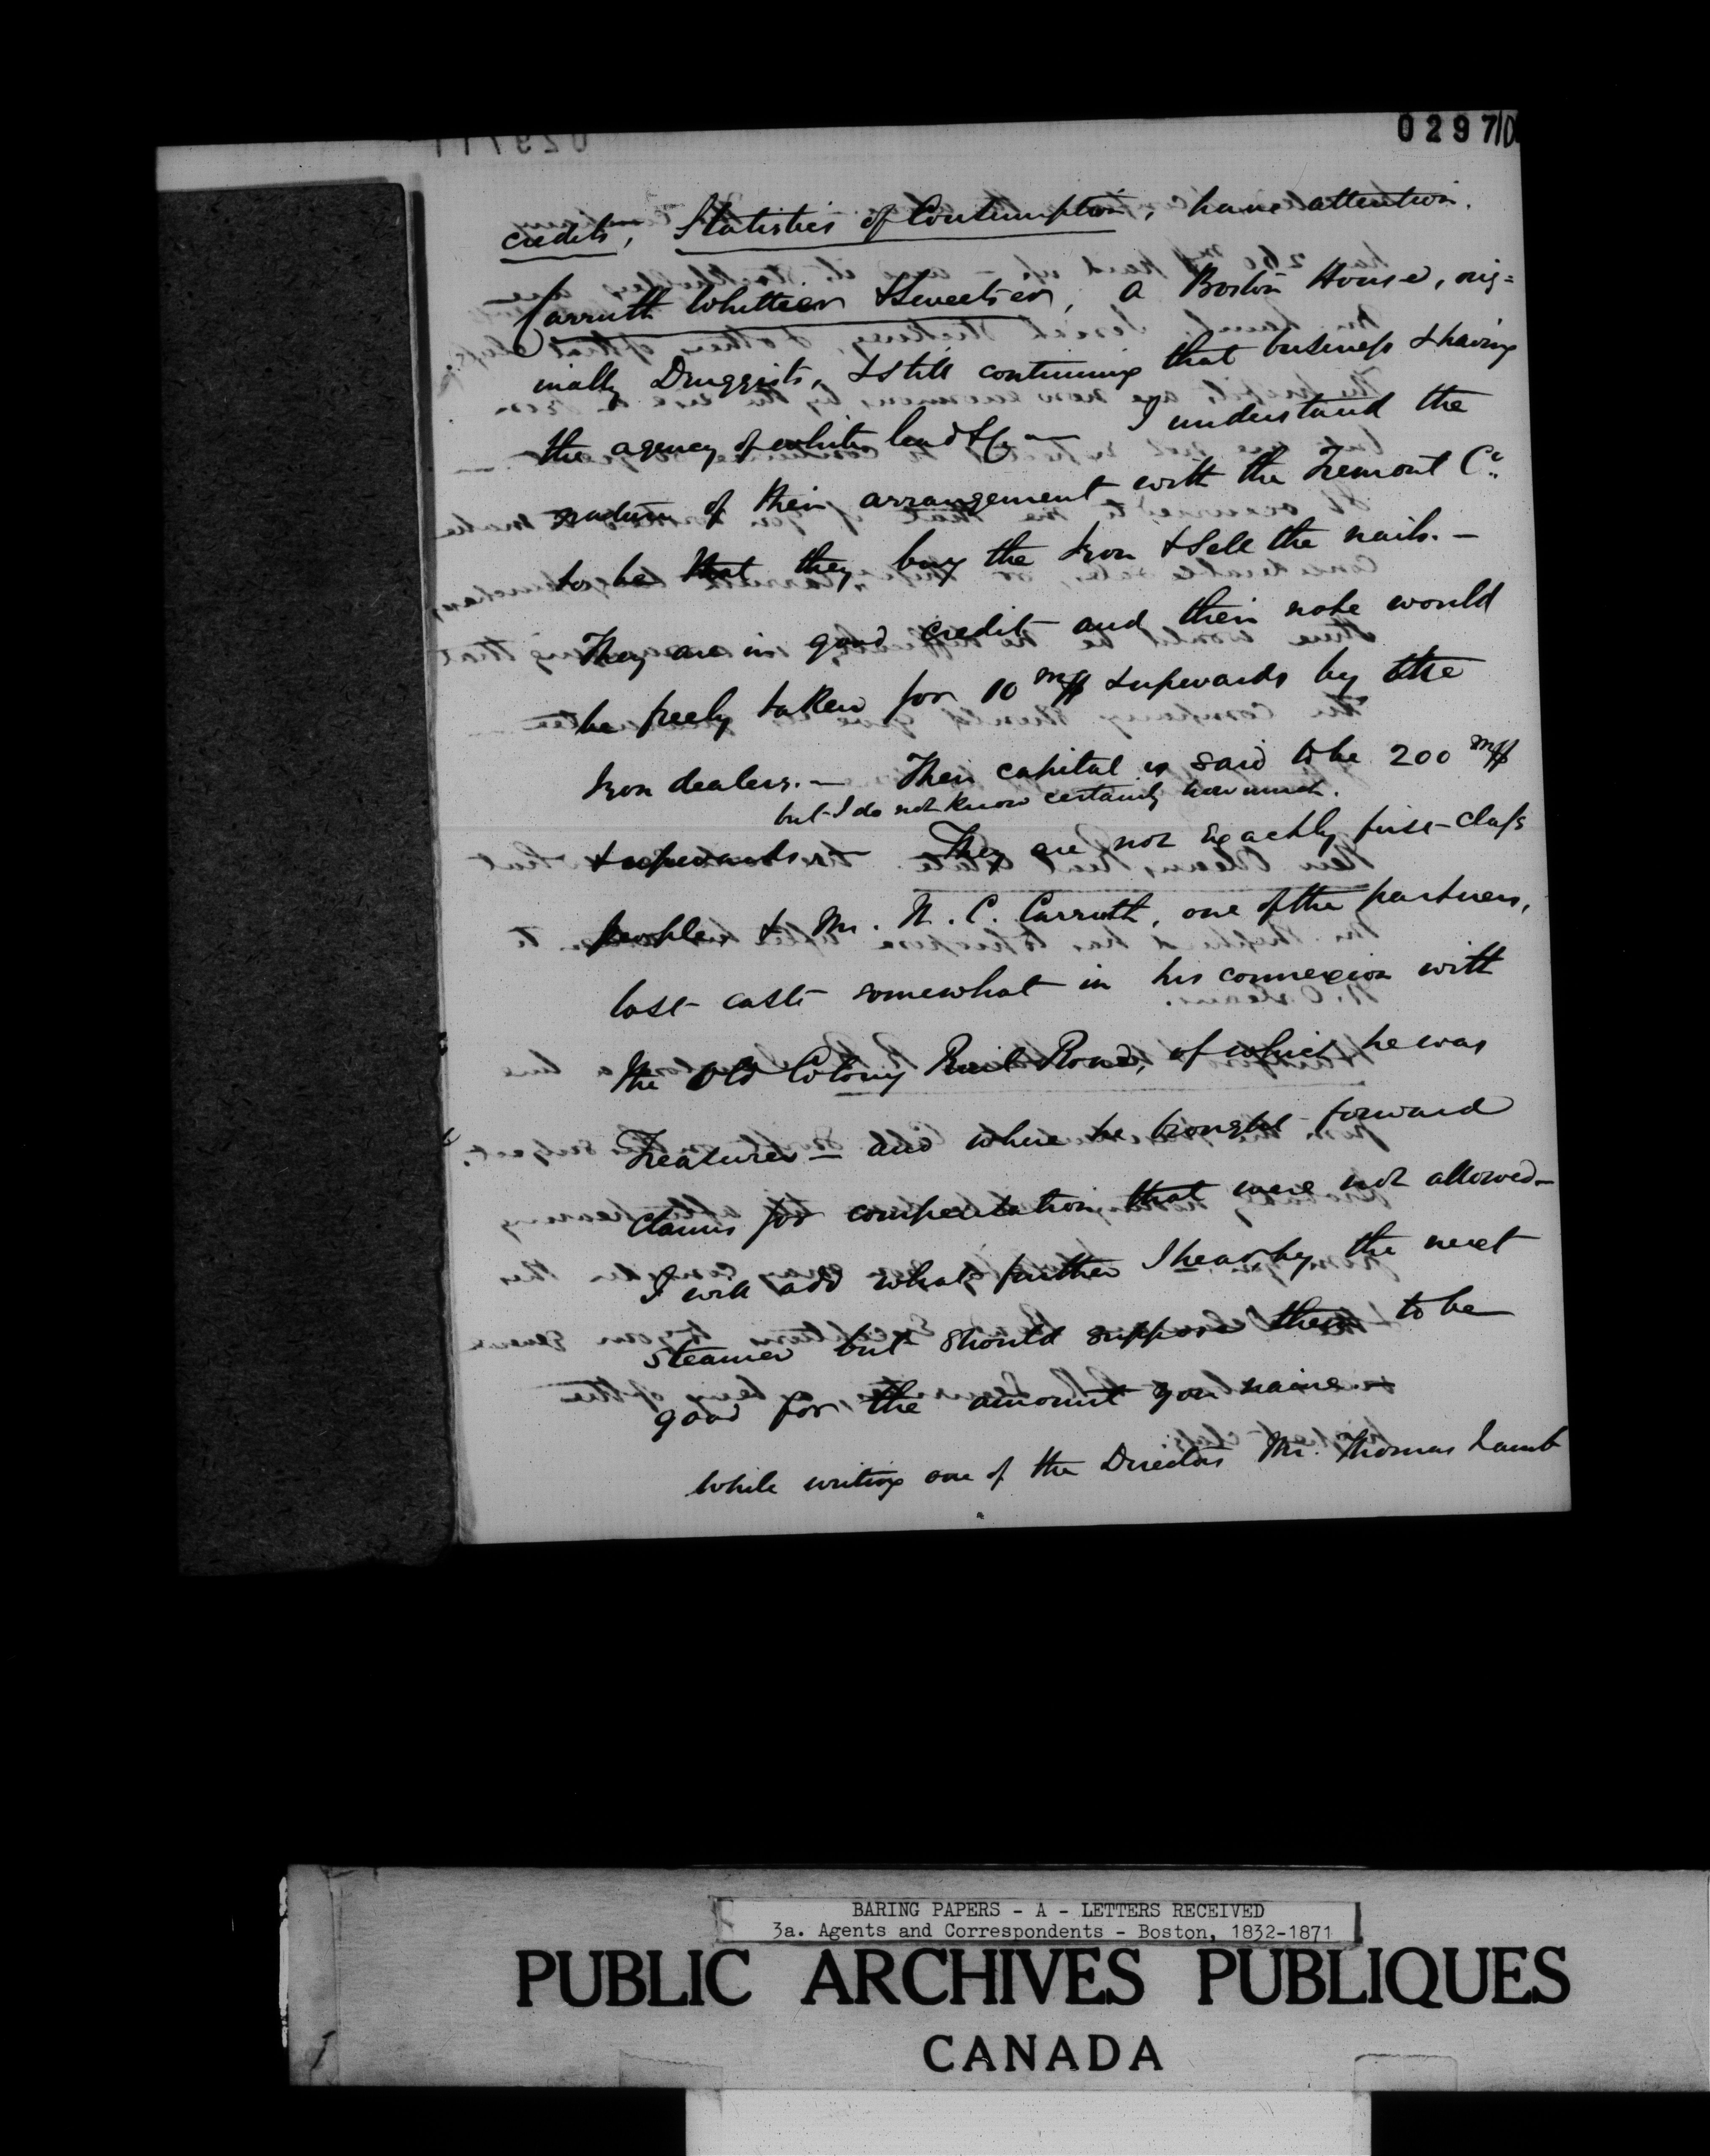 029710
credits, Statistics of Consumption, have attention.
Carruth Whittier & Sweetser, a Boston House, orig=
inally Druggists, & still continuing that business & having
the agency of white lead &c — I understand the
nature of their arrangement with the Tremont Co.
to be that they buy the Iron & sell the nails. —
They are in good credit and their note would
be freely taken for 10 m$ & upwards by the
Iron dealers. — Their capital is said to be 200 m$
but I do not know certainly how much.
& upwards — They are not exactly first-class
people & Mr. N. C. Carruth, one of the partners,
lost caste somewhat in his connexion with
the Old Colony Rail Road, of which he was
Treasurer — and where he brought forward
claims for compensation that were not allowed —
I will add what further I hear by the next
steamer but should suppose them to be
good for the amount you name. —
While writing one of the Directors Mr. Thomas Lamb
BARING PAPERS - A - LETTERS RECEIVED
3a. Agents and Correspondents - Boston, 1832-1871
PUBLIC ARCHIVES PUBLIQUES
CANADA